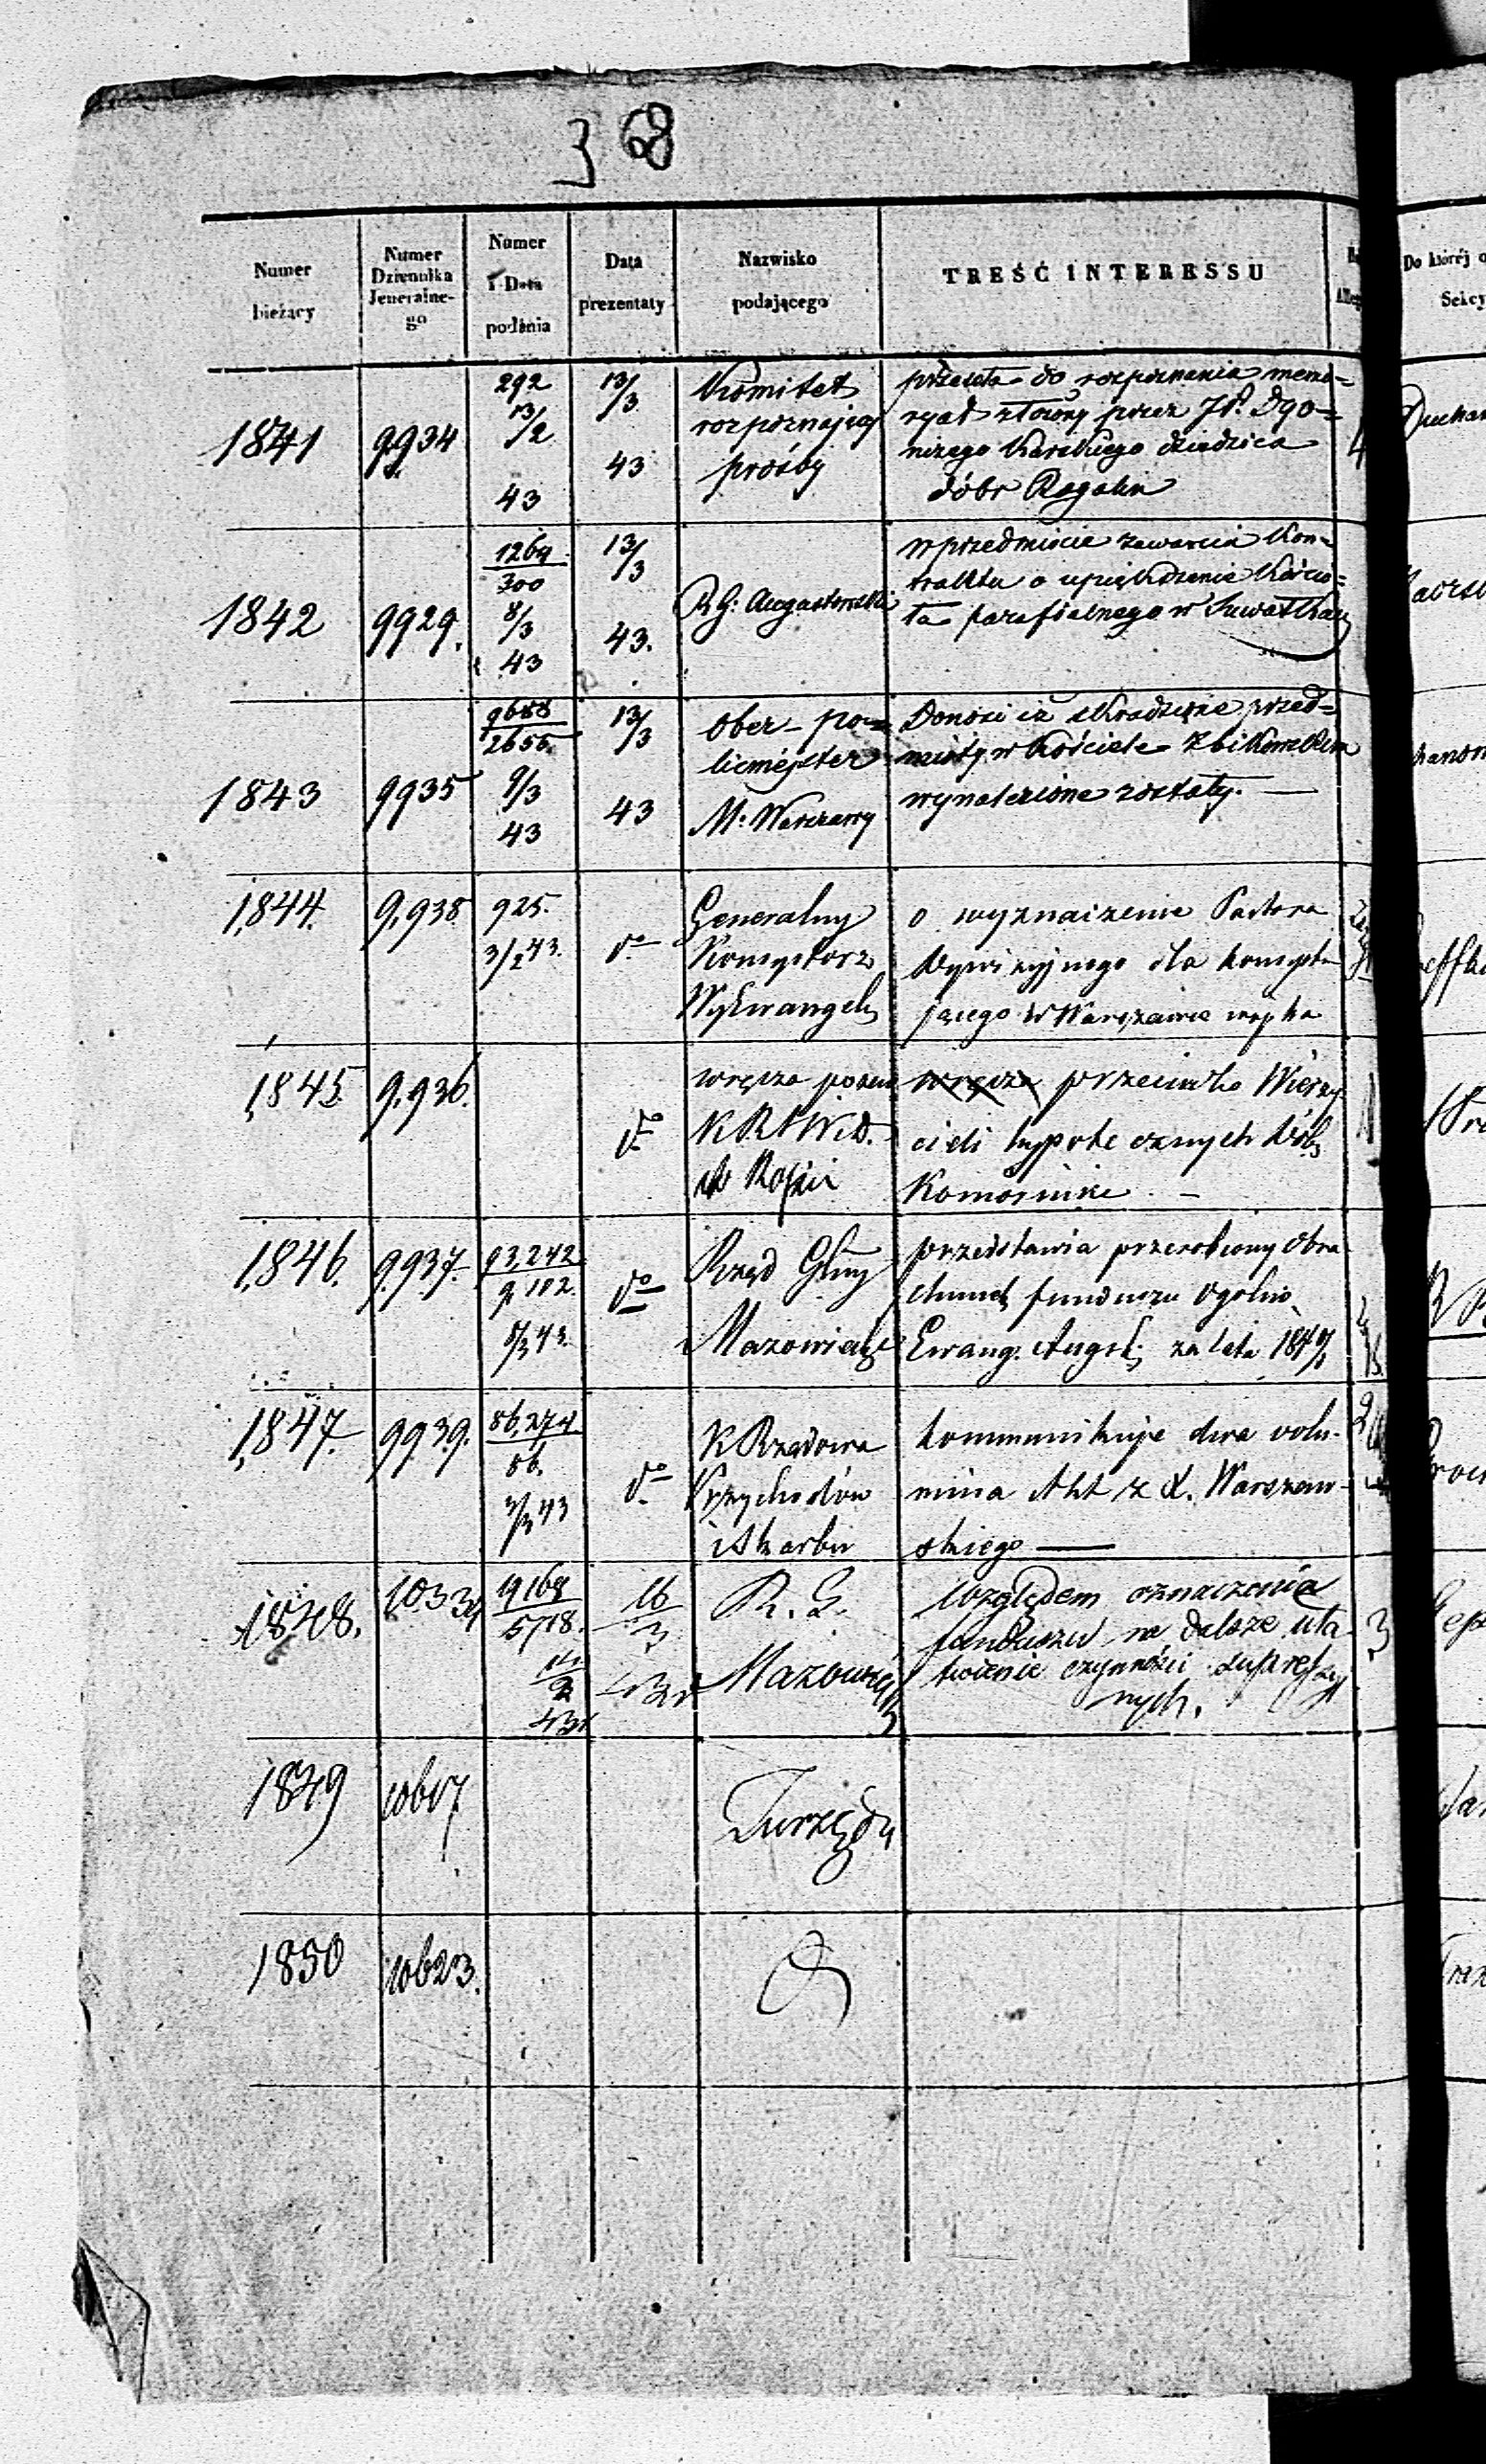 38
Numer bieżący
Numer Dziennika Jeneralne-go
Numer i Data podania
Data prezentaty
Nazwisko podającego
TREŚĆ INTERESSU
Do której
Sekcy
1841
9934
292
13/2
43
13/3
43
Komitet
rozpoznający
prośby
przesyła do rozpoznania memo=
ryał złożony przez JP. Dyo=
nizego Karskiego dziedzica
dóbr Rogalin
1842
9929.
1264
300
8/3
43
13/3
43.
R.G. Augustowski
w przedmiocie zawarcia Kon=
traktu o upiększenie Kościo=
ła parafialnego w Suwałkach
1843
9935
9688
2656.
9/3
43
13/3
43
Ober-po=
licmejster
M. Warszawy
Donosi iż skradzione przed=
mioty w Kościele Zbikowskim
wynalezione zostały. —
1,844.
9,938
925.
3/2 43.
do
Generalny
Konsystorz
Wy Ewangel.
o wyznaczenie Pastora
dla konsystu
jącego w Warszawie wojska
1,845.
9,936.
do
wręcza pozew
K R S W i D.
przeciwko Wierzy
cieli hypotecznych dóbr
Komorniki. —
1,846.
9,937.
93,242
9,102.
do
Rząd Gbny
Mazowiecki
przedstawia przerobiony obra
chunek funduszu ogólno
Ewang. Augsb. za lata
1,847.
9939.
86,274
86.
do
K Rządowa
Przychodów
i Skarbu
kommunikuje dwa volu-
mina Akt z d. Warszaw-
skiego —
1848.
10334
19168
5718.
43r
16
3
43r
R. G.
Mazowiecki
Względem oznaczenia
funduszu na dalsze uła
twienie czynności supressyj
nych.
1849
10617
Z urzędu
1850
10623.